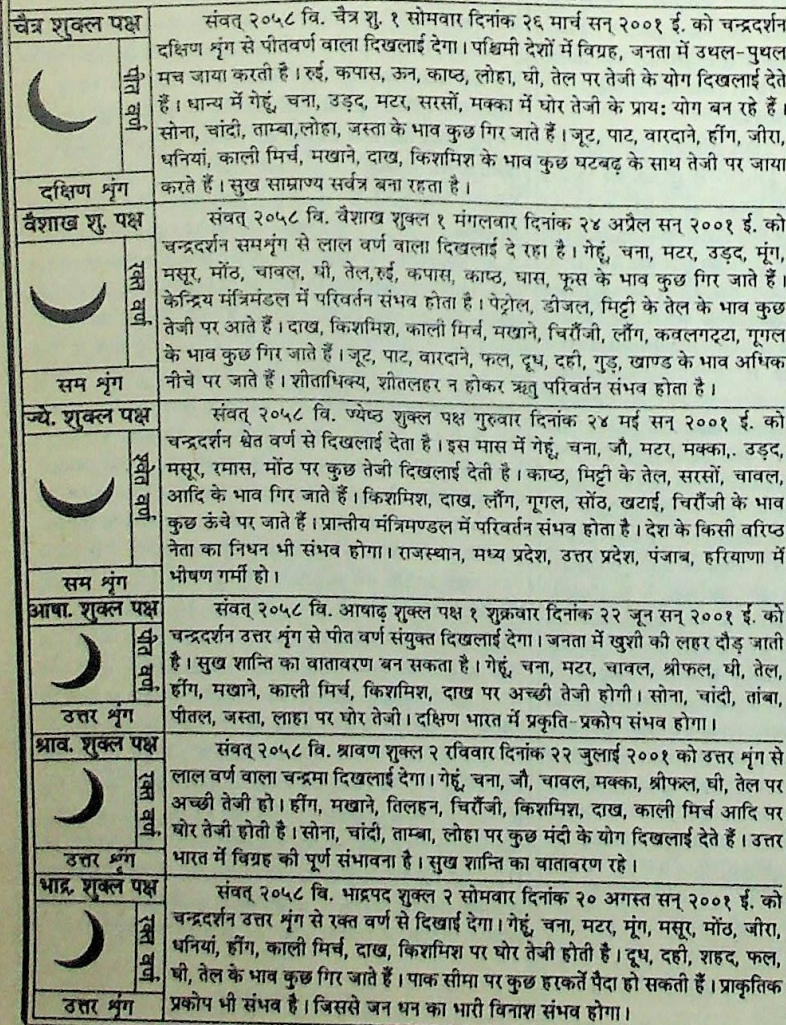 चैत्र शुक्ल पक्ष
पीत वर्ण
दक्षिण श्रृंग
संवत् २०५८ वि. चैत्र शु. १ सोमवार दिनांक २६ मार्च सन् २००१ ई. को चन्द्रदर्शन
दक्षिण श्रृंग से पीतवर्ण वाला दिखलाई देगा। पश्चिमी देशों में विग्रह, जनता में उथल-पुथल
मच जाया करती है। रुई, कपास, ऊन, काष्ठ, लोहा, घी, तेल पर तेजी के योग दिखलाई देते
हैं। धान्य में गेहूं, चना, उड़द, मटर, सरसों, मक्का में घोर तेजी के प्राय: योग बन रहे हैं।
सोना, चांदी, ताम्बा,लोहा, जस्ता के भाव कुछ गिर जाते हैं। जूट, पाट, वारदाने, हींग, जीरा,
धनियां, काली मिर्च, मखाने, दाख, किशमिश के भाव कुछ घटबढ़ के साथ तेजी पर जाया
करते हैं। सुख साम्राज्य सर्वत्र बना रहता है।
वैशाख शु. पक्ष
रक्त वर्ण
सम श्रृंग
संवत् २०५८ वि. वैशाख शुक्ल १ मंगलवार दिनांक २४ अप्रैल सन् २००१ ई. को
चन्द्रदर्शन समश्रृंग से लाल वर्ण वाला दिखलाई दे रहा है। गेहूं, चना, मटर, उड़द, मूंग,
मसूर, मोंठ, चावल, घी, तेल,रुई, कपास, काष्ठ, घास, फूस के भाव कुछ गिर जाते हैं।
केन्द्रिय मंत्रिमंडल में परिवर्तन संभव होता है। पेट्रोल, डीजल, मिट्टी के तेल के भाव कुछ
तेजी पर आते हैं। दाख, किशमिश, काली मिर्च, मखाने, चिरौंजी, लौंग, कवलगट्टा, गूगल
के भाव कुछ गिर जाते हैं। जूट, पाट, वारदाने, फल, दूध, दही, गुड़, खाण्ड के भाव अधिक
नीचे पर जाते हैं। शीताधिक्य, शीतलहर न होकर ऋतु परिवर्तन संभव होता है।
ज्ये. शुक्ल पक्ष
श्वेत वर्ण
सम श्रृंग
संवत् २०५८ वि. ज्येष्ठ शुक्ल पक्ष गुरुवार दिनांक २४ मई सन् २००१ ई. को
चन्द्रदर्शन श्वेत वर्ण से दिखलाई देता है। इस मास में गेहूं, चना, जौ, मटर, मक्का,. उड़द,
मसूर, रमास, मोंठ पर कुछ तेजी दिखलाई देती है। काष्ठ, मिट्टी के तेल, सरसों, चावल,
आदि के भाव गिर जाते हैं। किशमिश, दाख, लौंग, गूगल, सोंठ, खटाई, चिरौंजी के भाव
कुछ ऊंचे पर जाते हैं। प्रान्तीय मंत्रिमण्डल में परिवर्तन संभव होता है। देश के किसी वरिष्ठ
नेता का निधन भी संभव होगा। राजस्थान, मध्य प्रदेश, उत्तर प्रदेश, पंजाब, हरियाणा में
भीषण गर्मी हो।
आषा. शुक्ल पक्ष
पीत वर्ण
उत्तर श्रृंग
संवत् २०५८ वि. आषाढ़ शुक्ल पक्ष १ शुक्रवार दिनांक २२ जून सन् २००१ ई. को
चन्द्रदर्शन उत्तर श्रृंग से पीत वर्ण संयुक्त दिखलाई देगा। जनता में खुशी की लहर दौड़ जाती
है। सुख शान्ति का वातावरण बन सकता है। गेहूं, चना, मटर, चावल, श्रीफल, घी, तेल,
हींग, मखाने, काली मिर्च, किशमिश, दाख पर अच्छी तेजी होगी। सोना, चांदी, तांबा,
पीतल, जस्ता, लाहा पर घोर तेजी। दक्षिण भारत में प्रकृति-प्रकोप संभव होगा।
श्राव. शुक्ल पक्ष
रक्त वर्ण
उत्तर श्रृंग
संवत् २०५८ वि. श्रावण शुक्ल २ रविवार दिनांक २२ जुलाई २००१ को उत्तर श्रृंग से
लाल वर्ण वाला चन्द्रमा दिखलाई देगा। गेहूं, चना, जौ, चावल, मक्का, श्रीफल, घी, तेल पर
अच्छी तेजी हो। हींग, मखाने, तिलहन, चिरौंजी, किशमिश, दाख, काली मिर्च आदि पर
घोर तेजी होती है। सोना, चांदी, ताम्बा, लोहा पर कुछ मंदी के योग दिखलाई देते हैं। उत्तर
भारत में विग्रह की पूर्ण संभावना है। सुख शान्ति का वातावरण रहे।
भाद्र. शुक्ल पक्ष
रक्त वर्ण
उत्तर श्रृंग
संवत् २०५८ वि. भाद्रपद शुक्ल २ सोमवार दिनांक २० अगस्त सन् २००१ ई. को
चन्द्रदर्शन उत्तर श्रृंग से रक्त वर्ण से दिखाई देगा। गेहूं, चना, मटर, मूंग, मसूर, मोंठ, जीरा,
धनियां, हींग, काली मिर्च, दाख, किशमिश पर घोर तेजी होती है। दूध, दही, शहद, फल,
घी, तेल के भाव कुछ गिर जाते हैं। पाक सीमा पर कुछ हरकतें पैदा हो सकती हैं। प्राकृतिक
प्रकोप भी संभव है। जिससे जन धन का भारी विनाश संभव होगा।